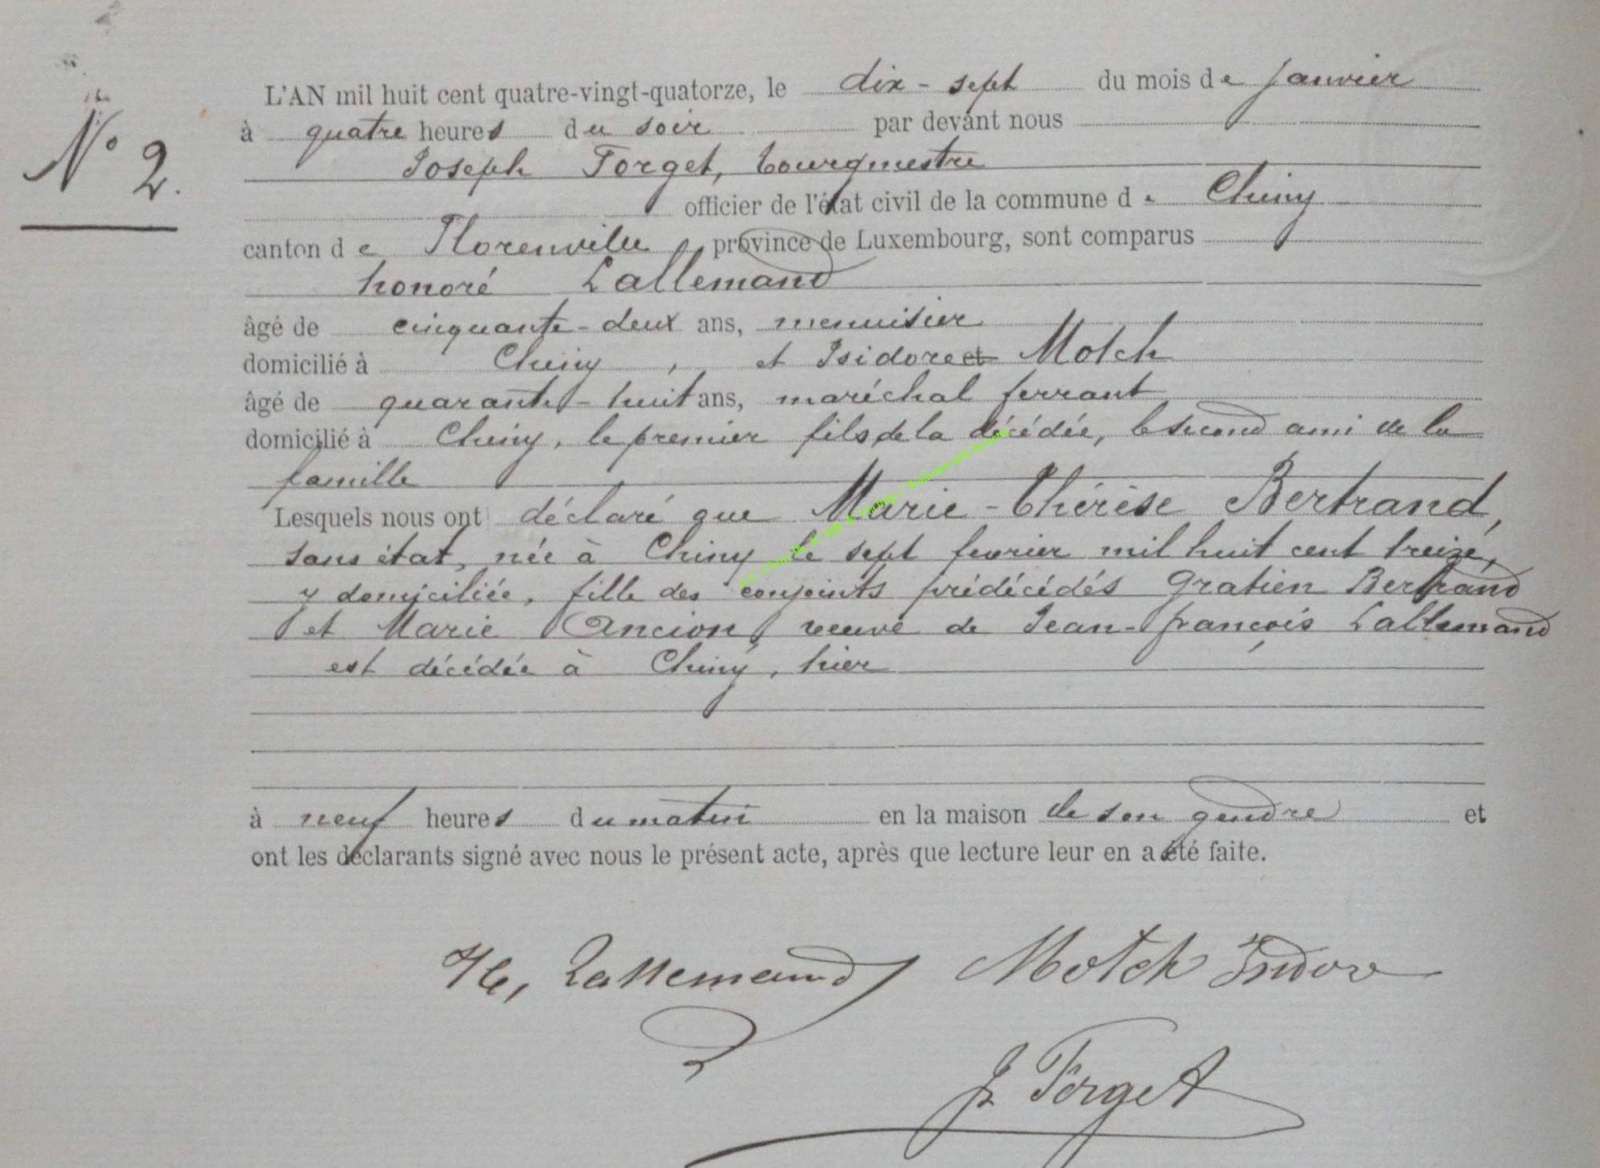 N° 2.
L'AN mil huit cent quatre-vingt-quatorze, le dix-sept du mois de janvier
à quatre heures du soir par devant nous
Joseph Forget, bourgmestre
officier de l'état civil de la commune de Chiny
canton de Florenville province de Luxembourg, sont comparus
honoré Lallemand
âgé de cinquante-deux ans, menuisier
domicilié à Chiny, et Isidore et Motch
âgé de quarante-huit ans, maréchal ferrant
domicilié à Chiny, le premier fils de la décédée, le second ami de la
famille
Lesquels nous ont déclaré que Marie-Thérèse Bertrand,
sans état, née à Chiny le sept fevrier mil huit cent treize,
y domiciliée, fille des conjoints prédécédés Gratien Bertrand
et Marie Ancion, veuve de Jean-françois Lallemand
est décédée à Chiny, hier
à neuf heures du matin en la maison de son gendre et
ont les déclarants signé avec nous le présent acte, après que lecture leur en a été faite.
H, Lallemand Motch Isidore
J Forget